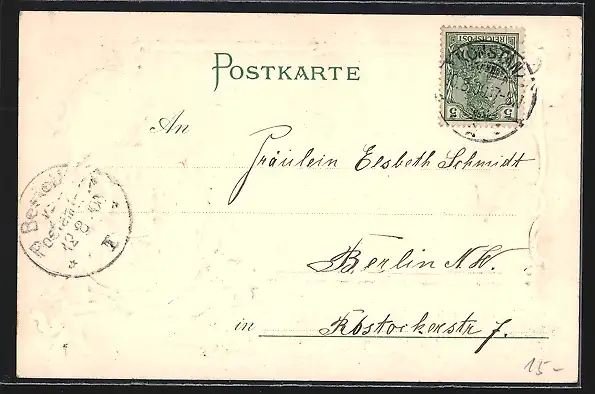 POSTKARTE
REICHSPOST
5 5
KONSTANZ
An
Fräulein Elsbeth Schmidt
Berlin N.W.
in Rostockerstr 7.
Bestellt
Postamt
12 8
F
15-